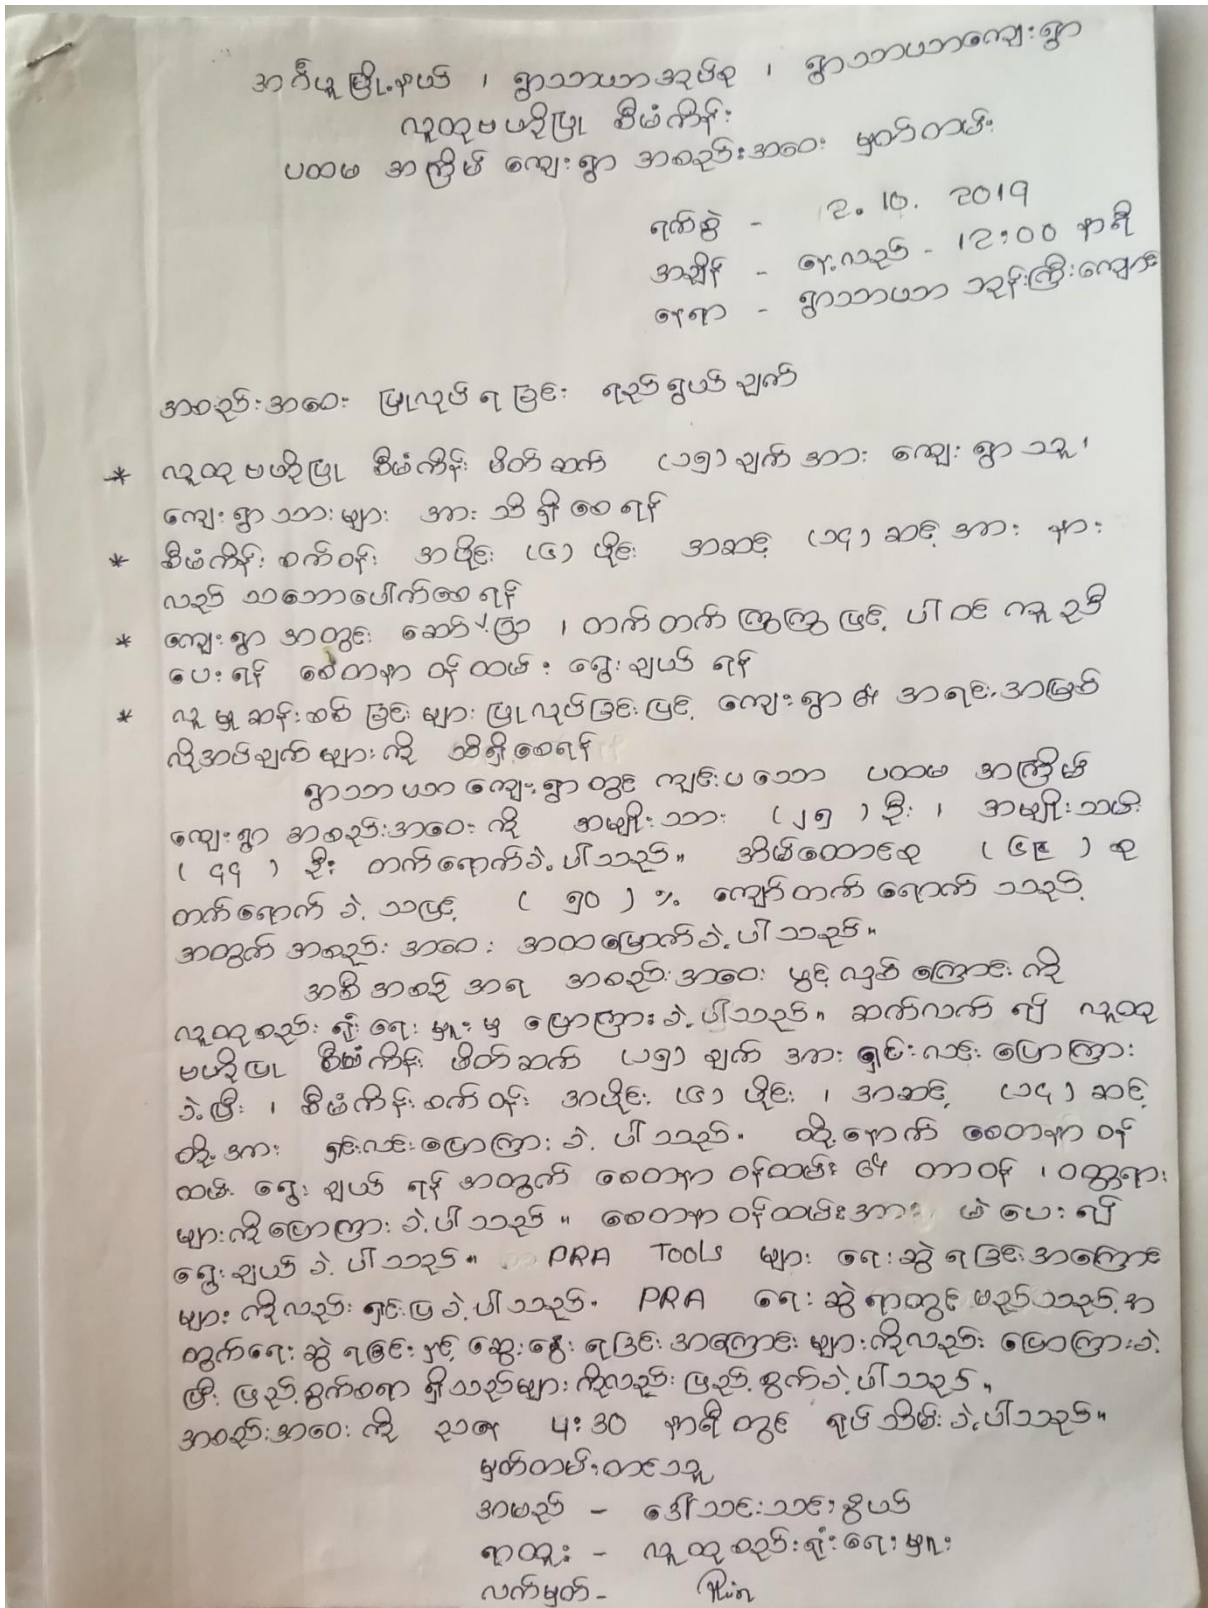 အင်္ဂပူမြို့နယ် ၊ ရွာသာယာအုပ်စု ၊ ရွာသာယာကျေးရွာ
လူထုဗဟိုပြု စီမံကိန်း
ပထမ အကြိမ် ကျေးရွာ အစည်းအဝေး မှတ်တမ်း
ရက်စွဲ - 2. 10. 2019
အချိန် - နေ့လည် - 12:00 နာရီ
နေရာ - ရွာသာယာ ဘုန်းကြီးကျောင်း
အစည်းအဝေး ပြုလုပ်ရခြင်း ရည်ရွယ်ချက်
* လူထုဗဟိုပြု စီမံကိန်း မိတ်ဆက် (၁၅) ချက်အား ကျေးရွာသူ၊
ကျေးရွာသားများ အား သိရှိစေရန်
* စီမံကိန်း စက်ဝန်း အပိုင်း (၄) ပိုင်း အဆင့် (၁၄) ဆင့်အား နား
လည် သဘောပေါက်စေရန်
* ကျေးရွာအတွင်း ဆော်ဩ ၊ တက်တက်ကြွကြွဖြင့် ပါဝင်ကူညီ
ပေးရန် စေတနာ့ဝန်ထမ်း ရွေးချယ်ရန်
* လူမှုဆန်းစစ်ခြင်းများ ပြုလုပ်ခြင်းဖြင့် ကျေးရွာ၏ အရင်းအမြစ်
လိုအပ်ချက်များကို သိရှိစေရန်
ရွာသာယာကျေးရွာတွင် ကျင်းပသော ပထမ အကြိမ်
ကျေးရွာ အစည်းအဝေးကို အမျိုးသား (၂၅) ဦး ၊ အမျိုးသမီး
(၄၄) ဦး တက်ရောက်ခဲ့ပါသည်။ အိမ်ထောင်စု (၆၉) စု
တက်ရောက်ခဲ့သဖြင့် (၅၀) % ကျော်တက်ရောက်သည့်
အတွက် အစည်းအဝေး အထမြောက်ခဲ့ပါသည်။
အစီအစဉ်အရ အစည်းအဝေး ဖွင့်လှစ်ကြောင်းကို
လူထုစည်းရုံးရေးမှူးမှ ပြောကြားခဲ့ပါသည်။ ဆက်လက်၍ လူထု
ဗဟိုပြု စီမံကိန်း မိတ်ဆက် (၁၅) ချက်အား ရှင်းလင်းပြောကြား
ခဲ့ပြီး ၊ စီမံကိန်းစက်ဝန်း အပိုင်း (၄) ပိုင်း ၊ အဆင့် (၁၄) ဆင့်
တို့အား ရှင်းလင်းပြောကြားခဲ့ပါသည်။ ထို့နောက် စေတနာ့ဝန်
ထမ်း ရွေးချယ်ရန်အတွက် စေတနာ့ဝန်ထမ်း၏ တာဝန် ၊ ဝတ္တရား
များကိုပြောကြားခဲ့ပါသည်။ စေတနာ့ဝန်ထမ်းအား မဲပေး၍
ရွေးချယ်ခဲ့ပါသည်။ PRA Tools များ ရေးဆွဲရခြင်းအကြောင်း
များကိုလည်း ရှင်းပြခဲ့ပါသည်။ PRA ရေးဆွဲရာတွင် မည်သည့်အ
တွက်ရေးဆွဲရခြင်းနှင့် ဆွေးနွေးရခြင်းအကြောင်းများကိုလည်း ပြောကြားခဲ့
ပြီး ဖြည့်စွက်စရာရှိသည်များကိုလည်း ဖြည့်စွက်ခဲ့ပါသည်။
အစည်းအဝေးကို ညနေ 4:30 နာရီတွင် ရုပ်သိမ်းခဲ့ပါသည်။
မှတ်တမ်းတင်သူ
အမည် - ဒေါ်သင်းသင်းနွယ်
ရာထူး - လူထုစည်းရုံးရေးမှူး
လက်မှတ် -